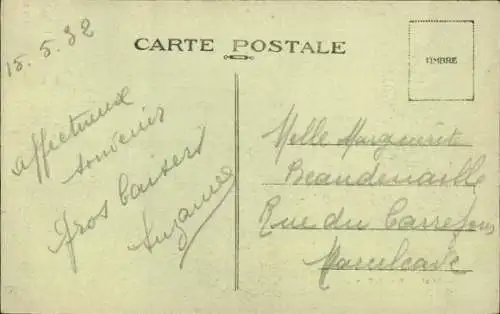 15.5.32
CARTE POSTALE
TIMBRE
affectueux
souvenir
Gros baisers
Suzanne
Melle Marguerite
Beaudenaille
Rue du Carrefour
Marcelcave